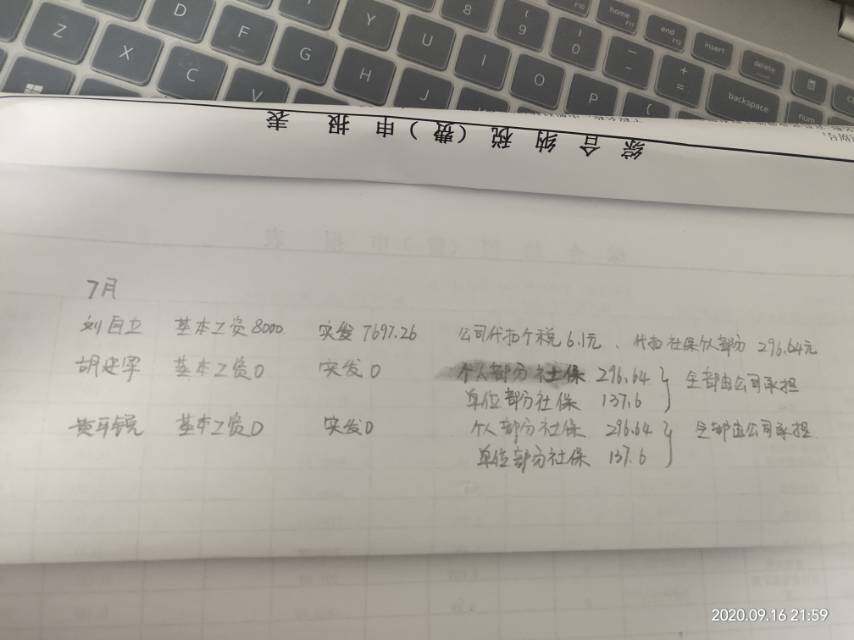 综合纳税（费）申报表
7月
刘自立 基本工资8000 实发7697.26 公司代扣个税6.1元、代扣社保个人部分 296.64元
胡建军 基本工资0 实发0 个人部分社保 296.64 全部由公司承担
单位部分社保 137.6
基本工资0 实发0 个人部分社保 296.64 全部由公司承担
单位部分社保 137.6
2020.09.16 21:59
Z X C V D F G H J Y U I O P 8 9 ( 0 ) - + =
home end insert delete backspace num